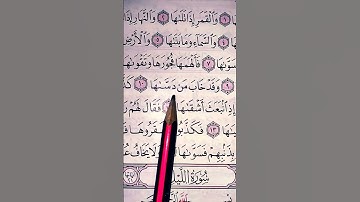 وَٱلْقَمَرِ إِذَا تَلَىٰهَا ٢ وَٱلنَّهَارِ إِذَا
وَٱلسَّمَآءِ وَمَا بَنَىٰهَا ٥ وَٱلْأَرْضِ
سَوَّىٰهَا ٧ فَأَلْهَمَهَا فُجُورَهَا وَتَقْوَىٰهَا
٩ وَقَدْ خَابَ مَن دَسَّىٰهَا ١٠
إِذِ ٱنۢبَعَثَ أَشْقَىٰهَا فَقَالَ لَهُمْ
١٣ فَكَذَّبُوهُ فَعَقَرُوهَا
بِذَنۢبِهِمْ فَسَوَّىٰهَا وَلَا يَخَافُ
سُورَةُ ٱللَّيْلِ